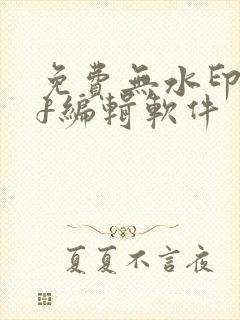 免費無水印
f編輯軟件
夏夏不言夜